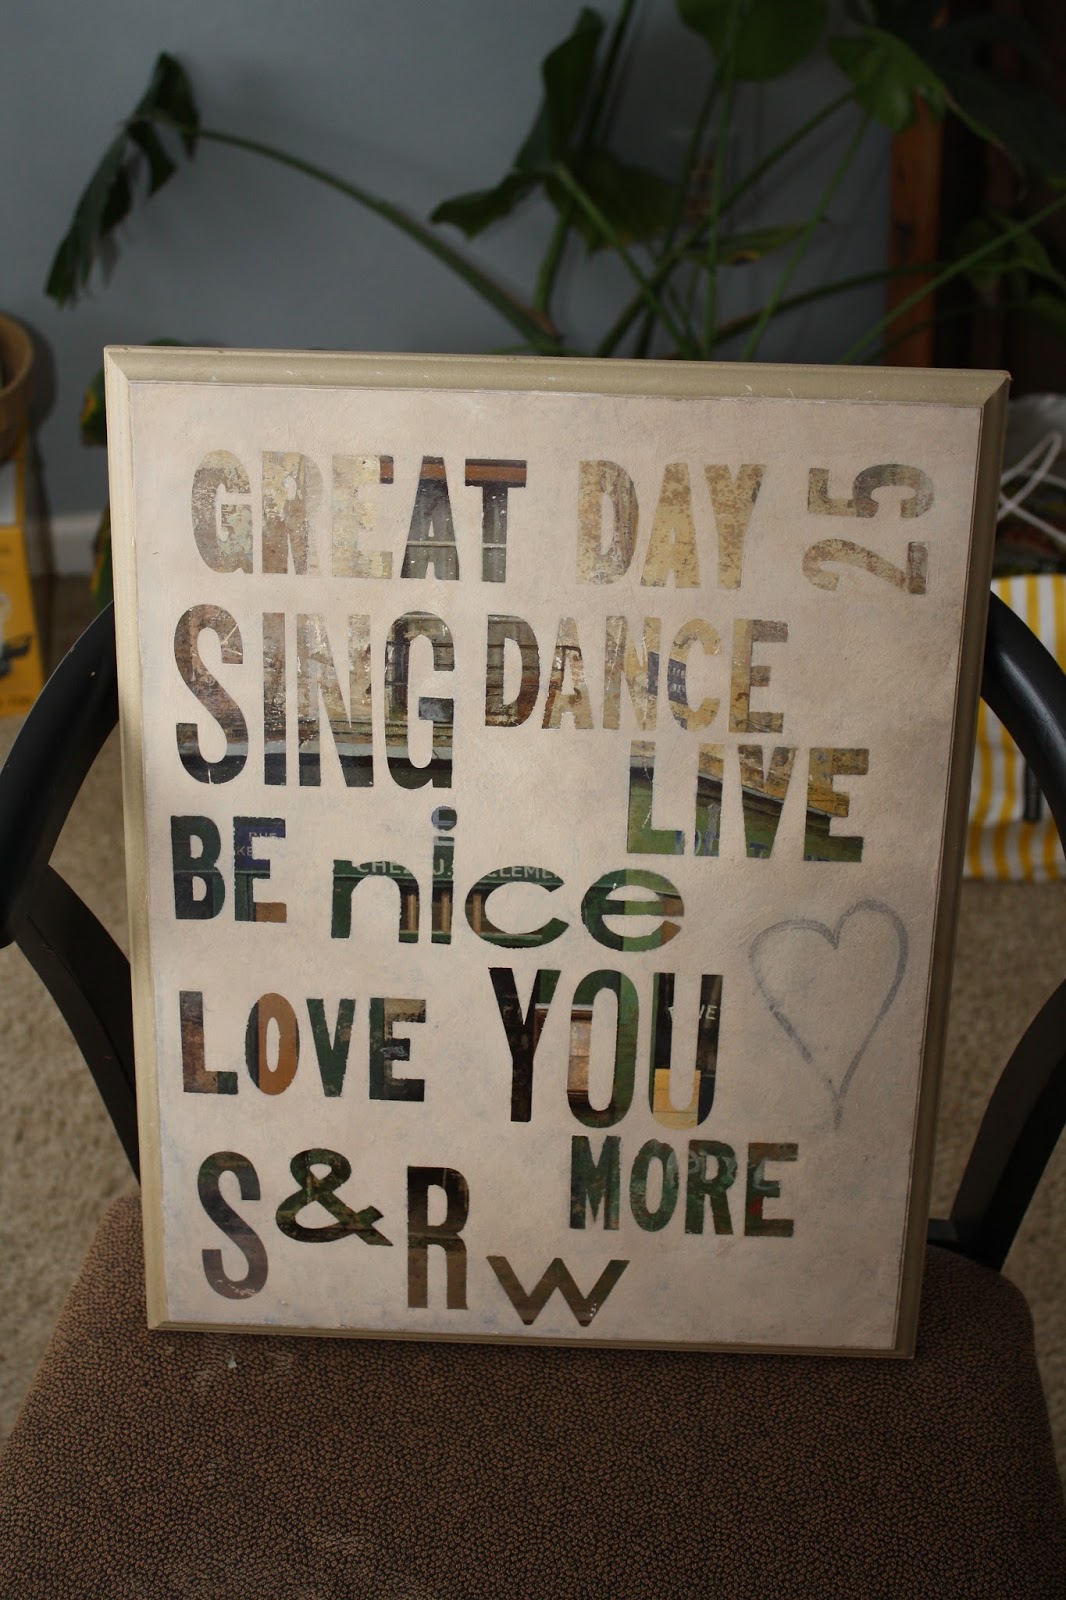 GREAT DAY 25
SING DANCE
LIVE
BE nice
LOVE YOU
MORE
S & R W